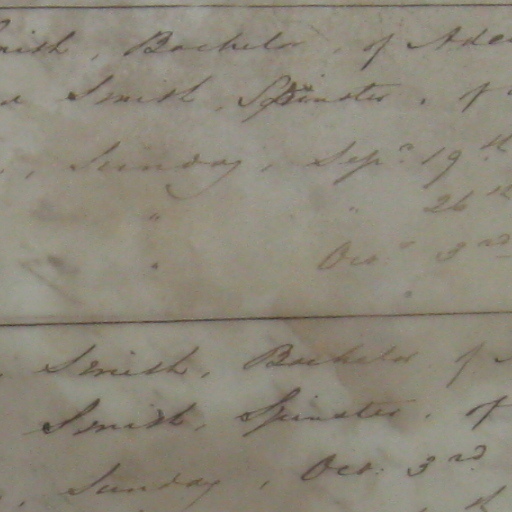 Smith, Bachelor, of Adel
Smith, Spinster, of
, Sunday, Sep. 19th
" " 26th
" Oct. 3rd
Smith, Bachelor of
Smith, Spinster, of
, Sunday, Oct. 3rd